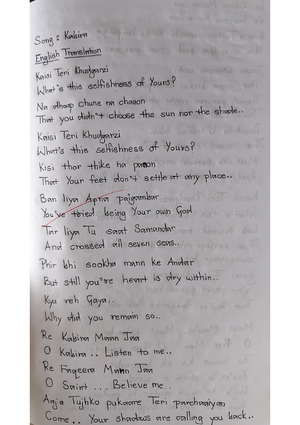 Song : Kabira
English Translation
Kaisi Teri Khudgarzi
What's this selfishness of Yours?
Na dhoop chune na chaaon
That you didn't choose the sun nor the shade..
Kaisi Teri Khudgarzi
What's this selfishness of Yours?
Kisi thor thike na paon
That Your feet don't settle at any place..
Ban liya Apna paigambar
You've tried being Your own God
Tar liya Tu saat Samandar
And crossed all seven seas..
Phir bhi sookha mann ke Andar
But still you're heart is dry within..
Kyu reh Gaya..
Why did you remain so..
Re Kabira Maan Jaa
O Kabira .. Listen to me..
Re Faqeera Maan Jaa
O Saint ... Believe me..
Aaja Tujhko pukaare Teri parchaaiyan
Come.. Your shadows are calling you back..